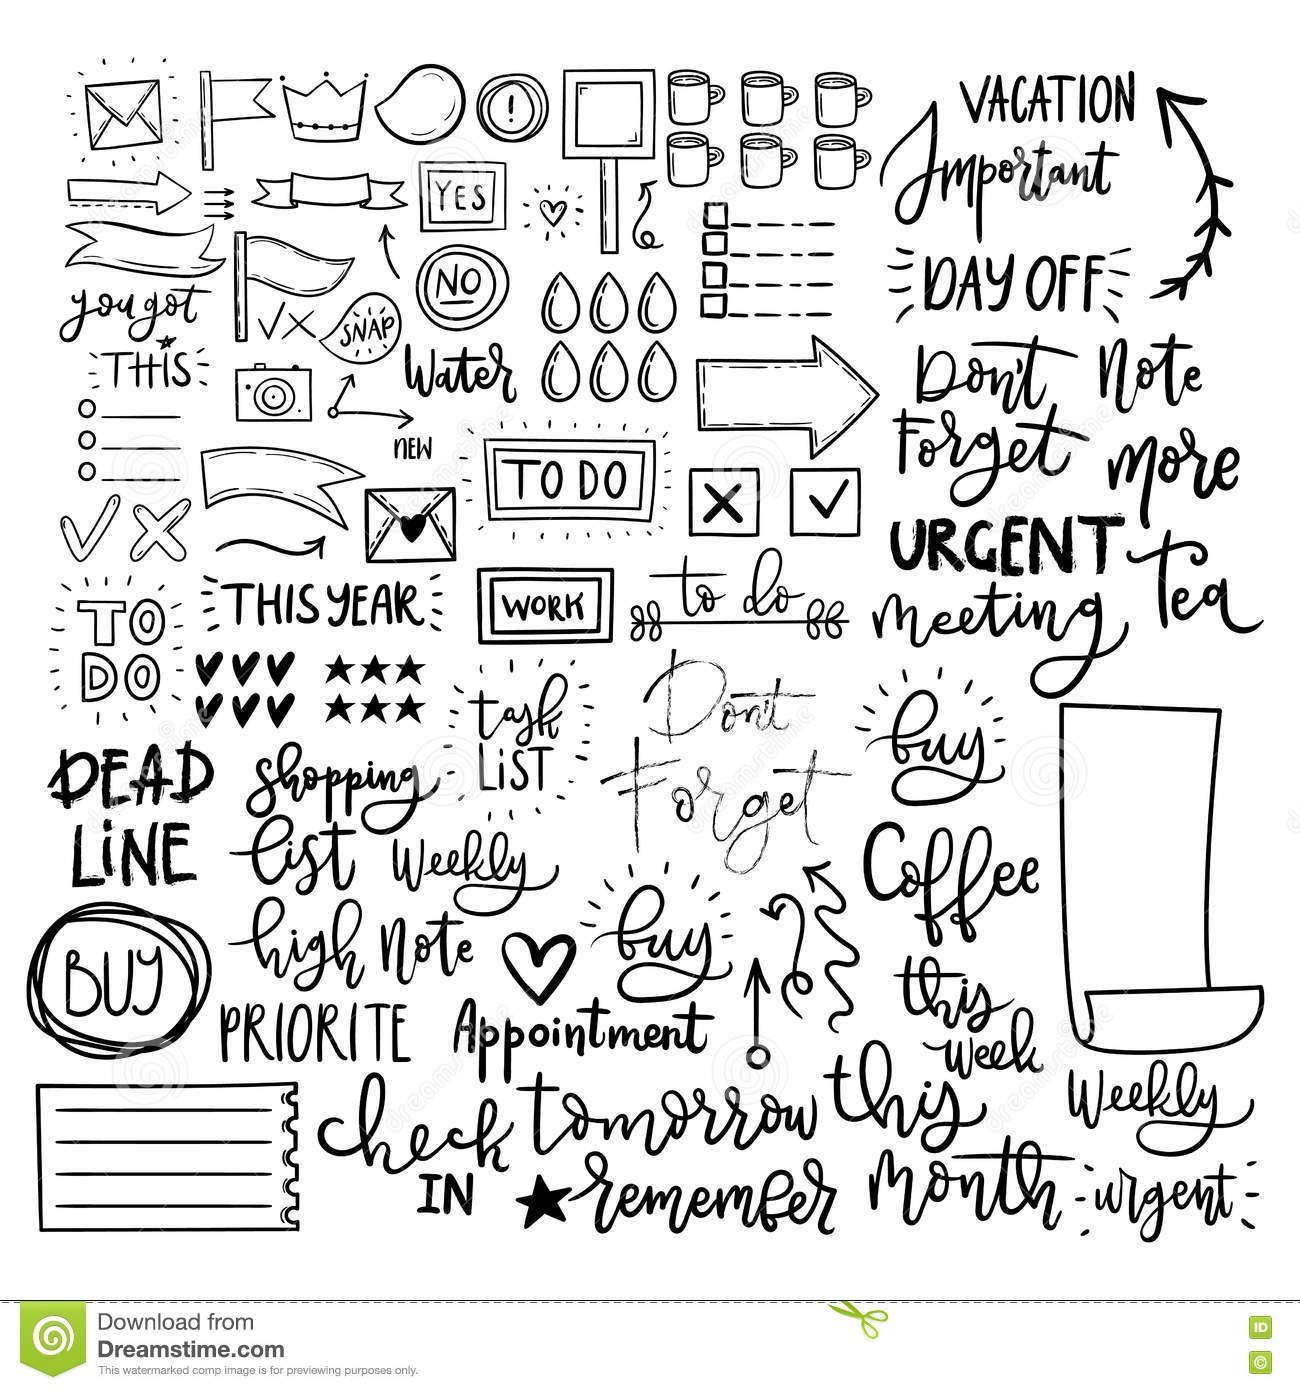 VACATION
Important
YES
DAY OFF
NO
you got
THIS
SNAP
Water
Don't
Forget
Note
more
NEW
TO DO
URGENT
meeting
Tea
TO
DO
THIS YEAR
WORK
to do
task
LIST
Don't
Forget
buy
DEAD
LINE
shopping
list
Weekly
Coffee
high Note
buy
BUY
PRIORITE
Appointment
this
week
Weekly
check
IN
tomorrow
remember
this
month
urgent
Download from
Dreamstime.com
This watermarked comp image is for previewing purposes only.
ID
©